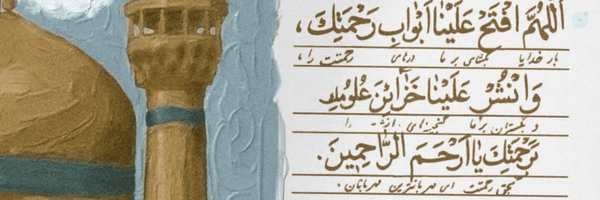 اَللّهُمَّ افْتَحْ عَلَیْنا اَبْوابَ رَحْمَتِكَ ،
بار خدایا بگشای بر ما درهای رحمتت را ،
وَانْشُرْ عَلَیْنا خَزائِنَ عُلُومِكَ
و بگستران بر ما گنجینه‌های دانشت را
بِرَحْمَتِكَ یا اَرْحَمَ الرّاحِمینَ.
بحق رحمتت ای مهربانترین مهربانان.